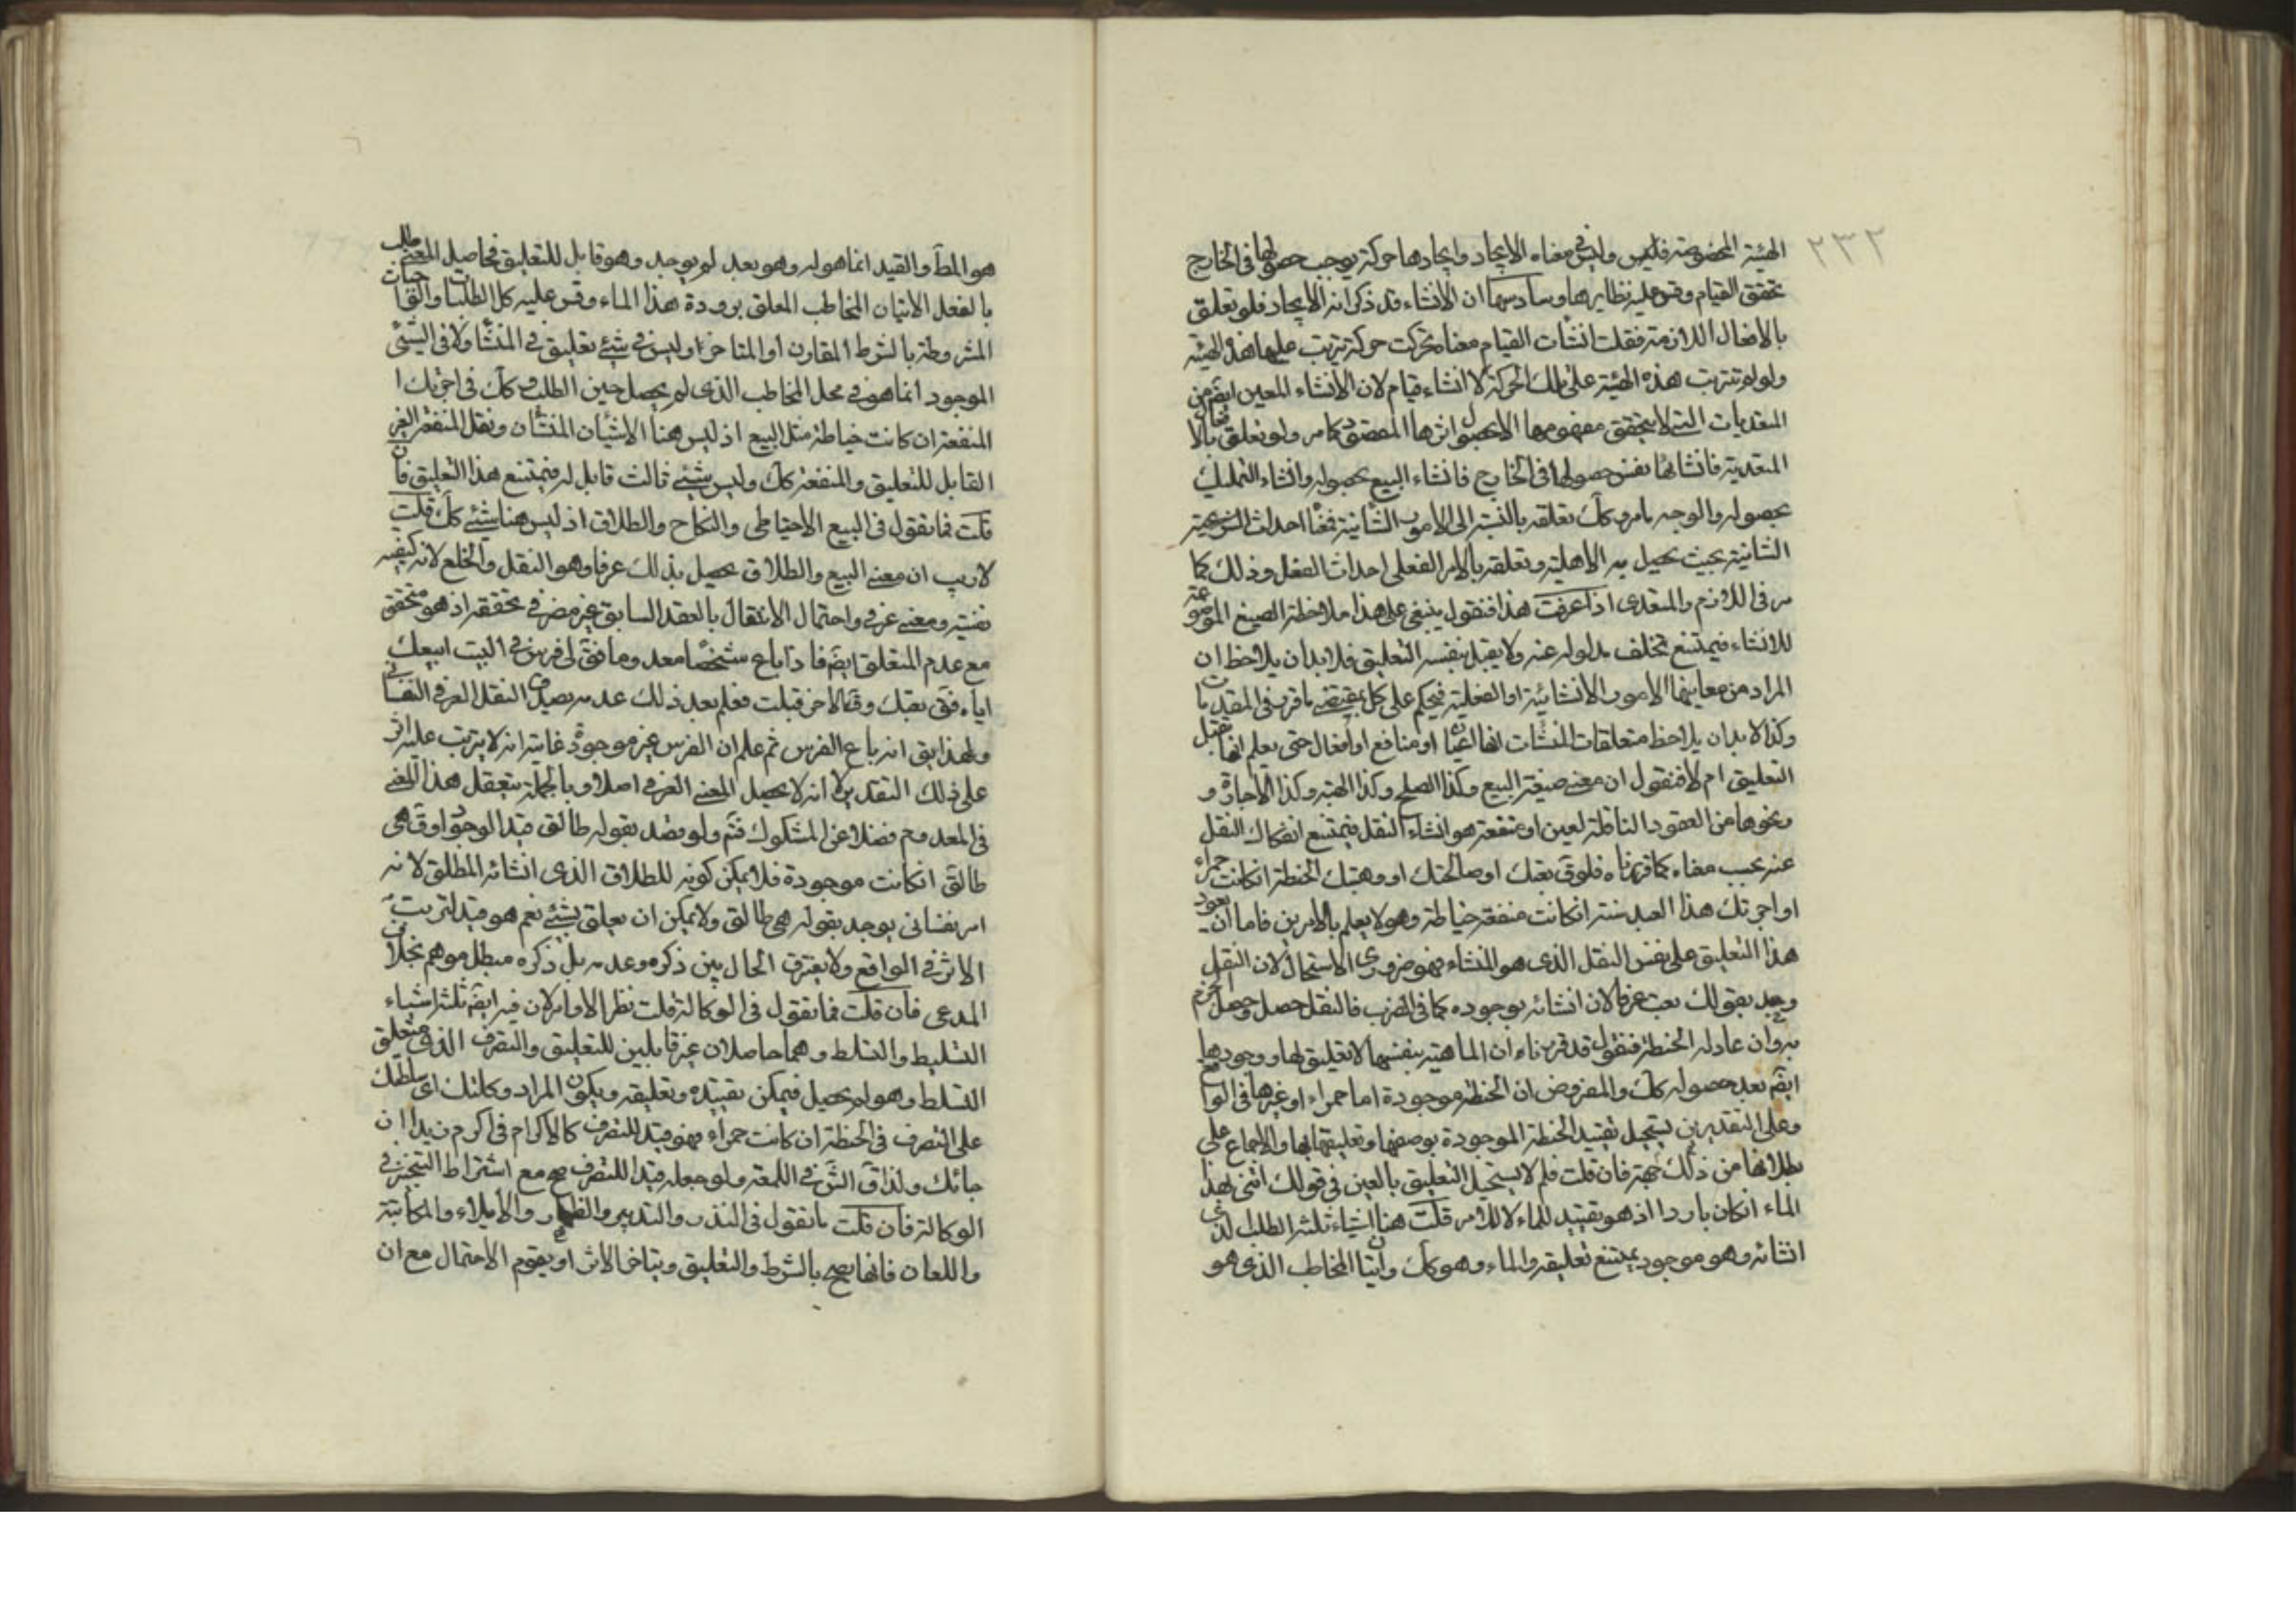 ٢٣٢
الهيئة المخصوصة فليس وليس في معناه الايجاد وايجادها حركة يوجب حصولها في الخارج
تحقق القيام وقس عليه نظايرها وسادسها ان الانشاء قد ذكر انه الايجاد فلو تعلق
بالافعال اللازمة فقلت انشات القيام معناه تحركت حركة يترتب عليها هذه الهيئة
ولو لم تترتب هذه الهيئة على تلك الحركة لا انشاء قيام لان الانشاء المعين ايضا من
المتعديات التي لا يتحقق مفهومها الا بحصول اثرها المقصود كما مر ولو تعلق بالافعال
المتعدية فانشائها نفس حصولها في الخارج فانشاء البيع بحصوله وانشاء التمليك
بحصوله والوجه ما مر وكك تعلقه بالنسبة الى الامور الثانية فمعنا احداث الشرعية
الثانية بحيث يحصل به الاهلية وتعلقه بالامر الفعلى احداث الفعل وذلك كما
مر في اللازم والمتعدى اذا عرفت هذا فنقول ينبغي على هذا ملاحظة الصيغ الموضوعة
للانشاء فيمتنع تخلف مدلوله عنه ولا يقبل بنفسه التعليق فلا بد ان يلاحظ ان
المراد من معاينها الامور الانشائية او الفعلية فيحكم على كل بمقتضى ما قرر في المقدمات
وكذا لا بد ان يلاحظ متعلقات المنشات انها اعيان او منافع او افعال حتى يعلم انها تقبل
التعليق ام لا فنقول ان معنى صيغة البيع وكذا الصلح وكذا الهبة وكذا الاجارة و
ونحوها من العقود الناقلة لعين او منفعة هو انشاء النقل فيمتنع انفكاك النقل
عنه بحسب معناه كما قررناه فلو ق بعتك او صالحتك او وهبتك الحنطة انكانت حمراء
او اجرتك هذا العبد سنة انكانت منفعته خياطة وهو لا يعلم بالامرين فاما ان يعود
هذا التعليق على نفس النقل الذى هو المنشاء فهو ضرورى الاستحالة لان النقل
وجد بقولك بعت عرفا لان انشائه بوجوده كما في الضرب فالنقل حصل وحصل الجزم
به وان عاد له الحنطة فنقول قد قررناه ان الماهية بنفسها لا تعليق لها ووجودها
ايضا بعد حصوله كك والمفروض ان الحنطة موجودة اما حمراء او غيرها في الواقع
وعلى التقديرين يستحيل تقييد الحنطة الموجودة بوصفها وتعليقها بها والاجماع على
بطلانها من ذلك جهة فان قلت فلم لا يستحيل التعليق بالعين في قولك اتنى بهذا
الماء انكان باردا اذ هو تقييد للماء لا للامر قلت هنا اشياء ثلثة الطلب الذى
انشائه وهو موجود يمتنع تعليقه والماء وهو كك واتيان المخاطب الذى هو
هو المط والقيد انما هو له وهو بعد لم يوجد وهو قابل للتعليق فحاصل المعنى طلب
بالفعل الاتيان المخاطب المعلق برودة هذا الماء وقس عليه كل الطلبات والقابات
المشروطة بالشرط المقارن او المتاخر وليس في شئ تعليق في المنشا ولا في الشئ
الموجود انما هو في محل المخاطب الذى لم يحصل حين الطلب وكك في اجرتك ا
المنفعة ان كانت خياطة مثل البيع اذ ليس هنا الا شيئان المنشان ونقل المنفعة الغير
القابل للتعليق والمنفعة كك وليس شيئ ثالث قابل له فيمتنع هذا التعليق فان
قلت فما تقول في البيع الاحتياطى والنكاح والطلاق اذ ليس هنا شيئ كك قلت
لا ريب ان معنى البيع والطلاق يحصل بذلك عرفا وهو النقل والخلع لانه كيفيه
نفسية ومعنى عرفى واحتمال الانتقال بالعقد السابق غير مضر في تحققه اذ هو متحقق
مع عدم المتعلق ايضا فاذا باع شخصا معد وما فق لى فرس في البيت ابيعك
اياه فق بعتك وق الاخر قبلت فعلم بعد ذلك عدمه يصدق النقل العرفى النفسانى
ولهذا يق انه باع الفرس ثم علم ان الفرس غير موجود غايته انه لا يترتب عليه اثر
على ذلك التقدير لا انه لا يحصل المعنى العرفى اصلا وبالجملة يتعقل هذا المعنى
في المعدوم فضلا عن المشكوك فتم ولو قصد بقوله طالق قيد الوجود او ق هى
طالق انكانت موجودة فلا يمكن كونه للطلاق الذى انشائه المطلق لانه
امر نفسانى يوجد بقوله هى طالق ولا يمكن ان يعلق بشئ نعم هو قيد لترتب
الاثر في الواقع ولا يفترق الحال بين ذكره وعدمه بل ذكره مبطل موهم بخلاف
المدعى فان قلت فما تقول في الوكالة قلت نظر الاوامر لان فيه ايضا ثلثة اشياء
التسليط والتسلط وهما حاصلان غير قابلين للتعليق والتصرف الذى هو متعلق
التسلط وهو لم يحصل فيمكن تقييده وتعليقه ويكون المراد وكلتك اى سلطتك
على التصرف في الحنطة ان كانت حمراء فهو قيد للتصرف كالاكرام في اكرم زيدا ان
جائك ولذا ق الش في اللمعة ولو جعله قيدا للتصرف صح مع اشتراط التنجيز في
الوكالة فان قلت ما تقول في النذر والتدبير والظهار والايلاء والمكاتبة
واللعان فانها يصح بالشرط والتعليق ويتاخر الاثر او يقوم الاحتمال مع ان